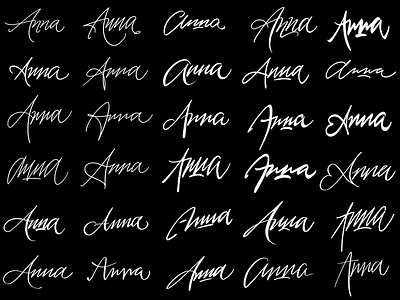 Anna Anna anna Anna Anna
Anna Anna Anna Anna anna
Anna Anna Anna Anna Anna
anna Anna Anna Anna Anna
Anna Anna Anna Anna Anna
Anna Anna Anna anna Anna